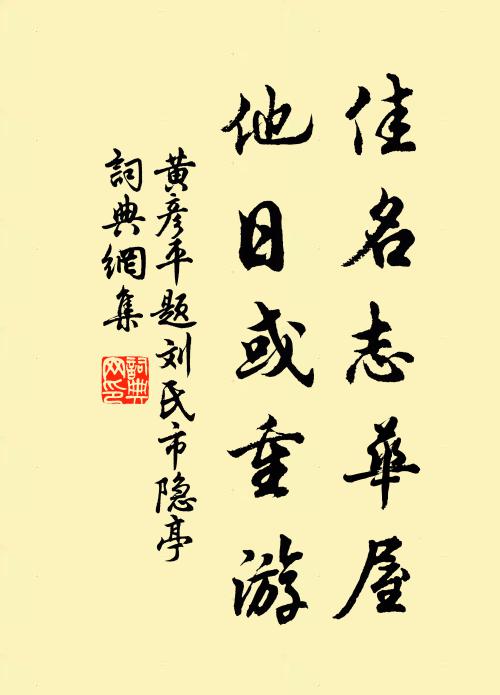 佳名志華屋
他日或重游
黄彦平题刘氏市隐亭
詞典網集
詞典網印